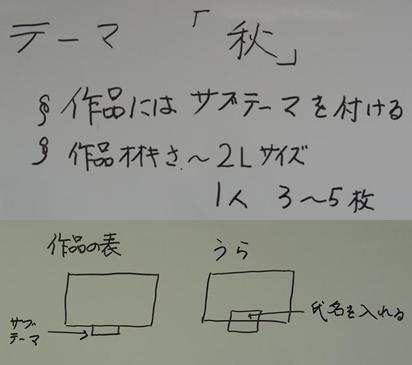 テーマ 「秋」
§ 作品にはサブテーマを付ける
§ 作品大きさ~2Lサイズ
1人 3~5枚
作品の表
うら
サブ
テーマ
氏名を入れる